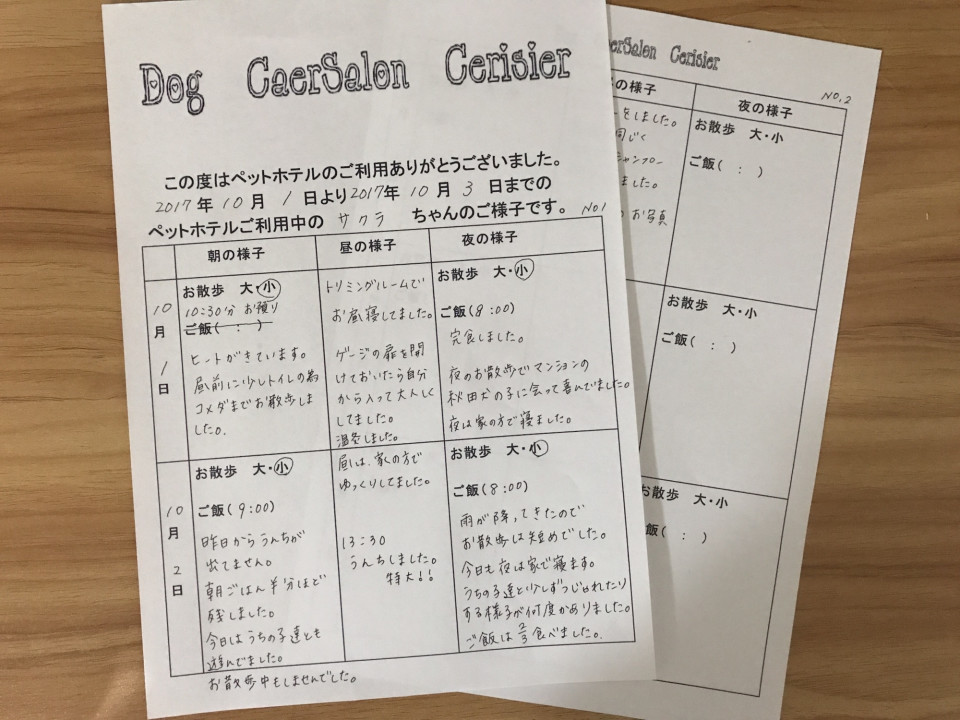 Dog CaerSalon Cerisier
この度はペットホテルのご利用ありがとうございました。
2017年 10月 1日より2017年 10月 3日までの
ペットホテルご利用中の サクラ ちゃんのご様子です。 NO1
朝の様子 昼の様子 夜の様子
10月1日
お散歩 大・小
10:30分 お預り
ご飯( : )
ヒートがきています。
昼前に少しトイレの為
コメダまでお散歩しま
した。
トリミングルームで
お昼寝してました。
ゲージの扉を開
けておいたら自分
から入って大人しく
してました。
温冬しました。
お散歩 大・小
ご飯(8:00)
完食しました。
夜のお散歩でマンションの
秋田犬の子に会って喜んでました。
夜は家の方で寝ました。
10月2日
お散歩 大・小
ご飯(9:00)
昨日からうんちが
出てません。
朝ごはん半分ほど
残しました。
今日はうちの子達とも
遊んでました。
お散歩中もしませんでした。
昼は、家の方で
ゆっくりしてました。
13:30
うんちしました。
特大!!
お散歩 大・小
ご飯(8:00)
雨が降ってきたので
お散歩は短めでした。
今日も夜は家で寝ます。
うちの子達と少しずつじゃれたり
する様子が何度かありました。
ご飯は2/3食べました。
erSalon Cerisier
NO,2
の様子 夜の様子
ーをしました。
同じく
キャンプー
ました。
お写真
お散歩 大・小
ご飯( : )
お散歩 大・小
ご飯( : )
お散歩 大・小
飯( : )